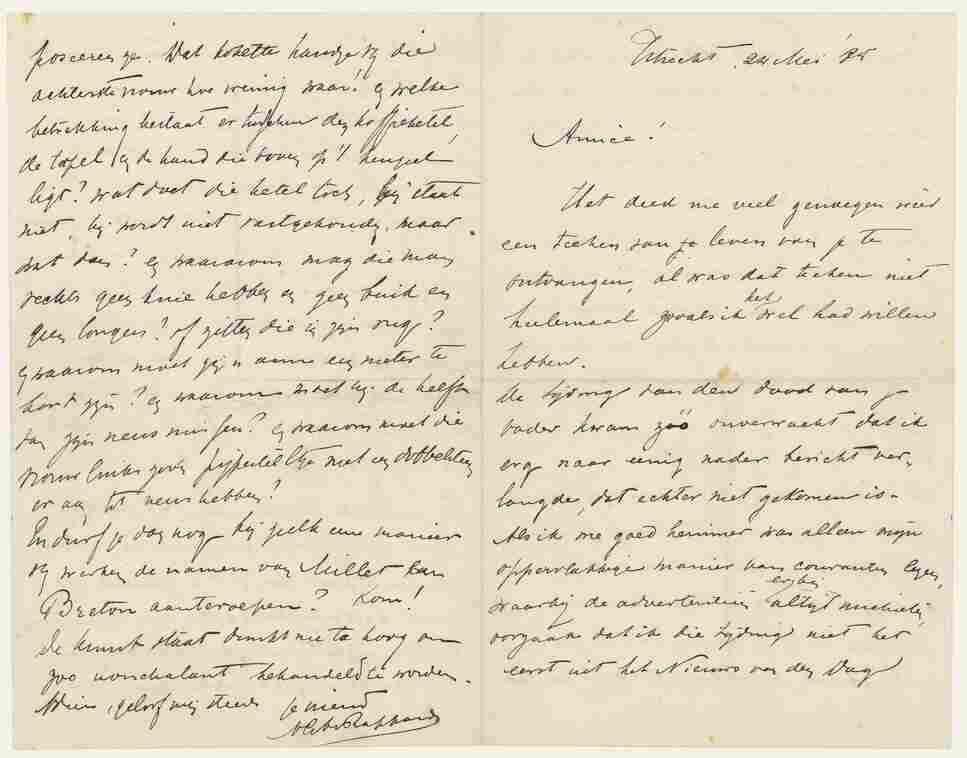 Dat kokette handje v die
achterste vrouw hoe weinig waar! en welke
betrekking bestaat er tusschen den koffieketel,
de tafel en de hand die boven op 't hengsel
ligt? wat doet die ketel toch, hij staat
niet, hij wordt niet vastgehouden, maar
wat dan? en waarom mag die man
rechts geen knie hebben en geen buik en
geen longen? of zitten die in zijn rug?
en waarom moet zijn arm een meter te
kort zijn? en waarom moet hij de helft
van zijn neus missen? en waarom moet die
vrouw links zoo'n pijpesteeltje met een dobbelsteen
er aan tot neus hebben?
En durf je dan nog bij zulk eene manier
v werken de namen van Millet en
Breton aanteroepen? Kom!
De kunst staat dunkt me te hoog om
zoo nonchalant behandeld te worden.
Adieu, geloof mij steeds je vriend
AGAvRappard
Utrecht 24 Mei '85
Amice!
Het deed me veel genoegen weer
een teeken van je leven van je te
ontvangen, al was dat teeken niet
heelemaal zooals ik het wel had willen
hebben.
De tijding van den dood van je
vader kwam zóó onverwacht dat ik
erg naar eenig nader bericht ver-
langde, dat echter niet gekomen is -
Als ik me goed herinner was alleen mijn
oppervlakkige manier van couranten lezen,
waarbij de advertentiën er bij altijd
oorzaak dat ik die tijding niet het
eerst uit het Nieuws van den Dag